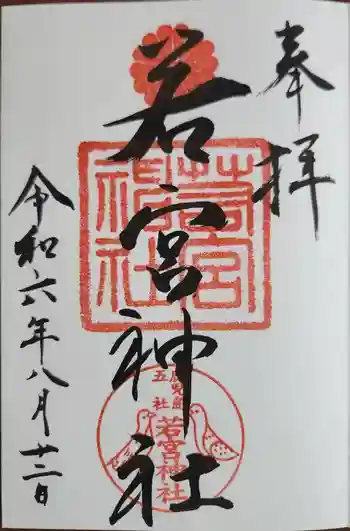 奉拝
若宮神社
令和六年八月十二日
若宮神社
鹿児島
五社
若宮神社